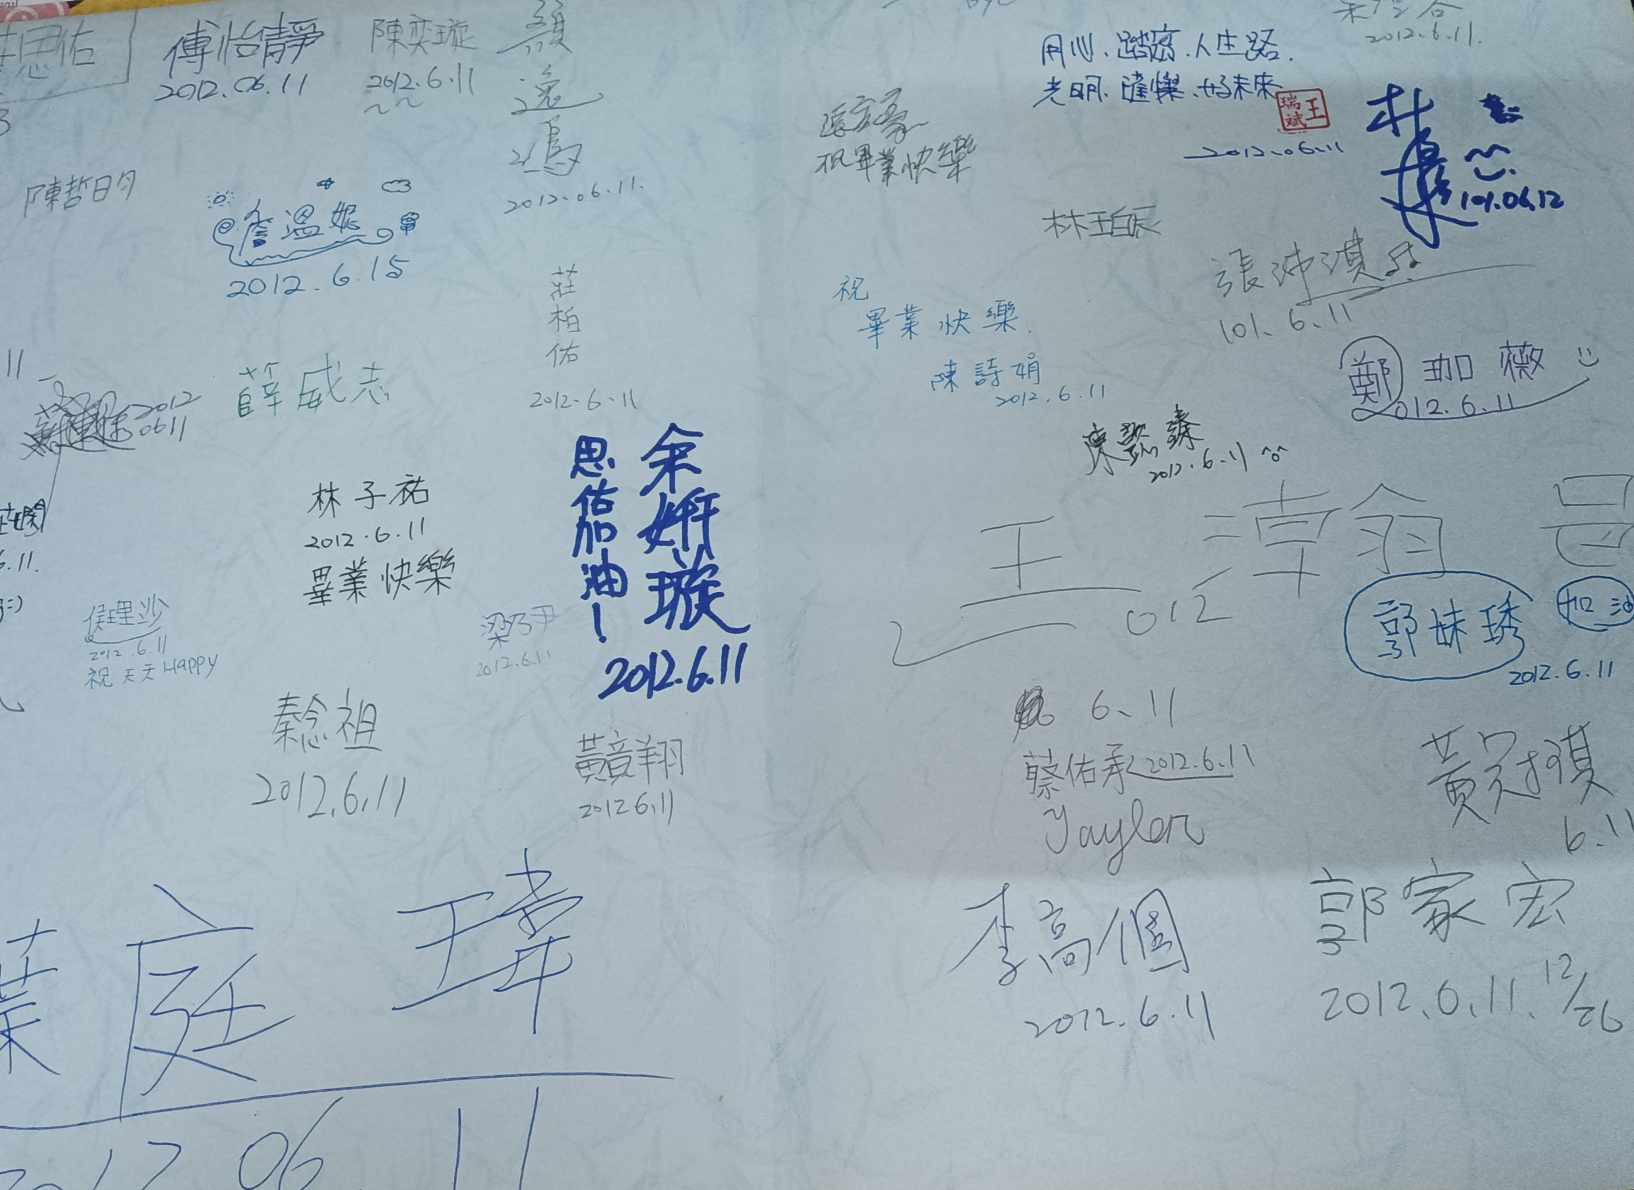 思佑
傅怡靜
2012.06.11
陳奕璇
2012.6.11
顏
逸
鴻
2012.06.11.
陳哲明
詹溫妮
2012.6.15
莊
柏
佑
2012.6.11
薛威志
2012
0611
林子祐
2012.6.11
畢業快樂
思佑加油!
余姸璇
2012.6.11
侯理沙
2012.6.11
祝天天Happy
梁乃尹
2012.6.11
秦念祖
2012.6.11
黃竟翔
2012 6.11
葉庭瑋
2012 06 11
2012.6.11.
用心.踏實.人生路.
光明.璀燦.好未來
王瑞斌
2012.06.11
祝畢業快樂
101.06.12
林珀辰
張沛淇
101.6.11
祝
畢業快樂.
陳詩娟
2012.6.11
鄭珈薇
2012.6.11
陳懿臻
2012.6.11
王淖翁
2012
郭姝琇
加油
2012.6.11
6、11
蔡佑承 2012.6.11
Jaylen
黃
6.11
李高個
2012.6.11
郭家宏
2012.6.11. 12/26